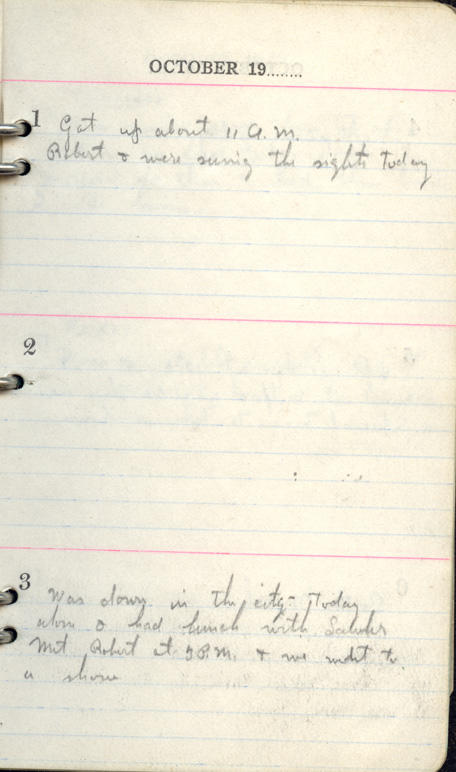 OCTOBER 19........
1 Got up about 11 A.M.
Robert & were seeing the sights Today
2
3 Was down in the city Today
alone & had lunch with
Met Robert at 5 P.M. & we went to
a show